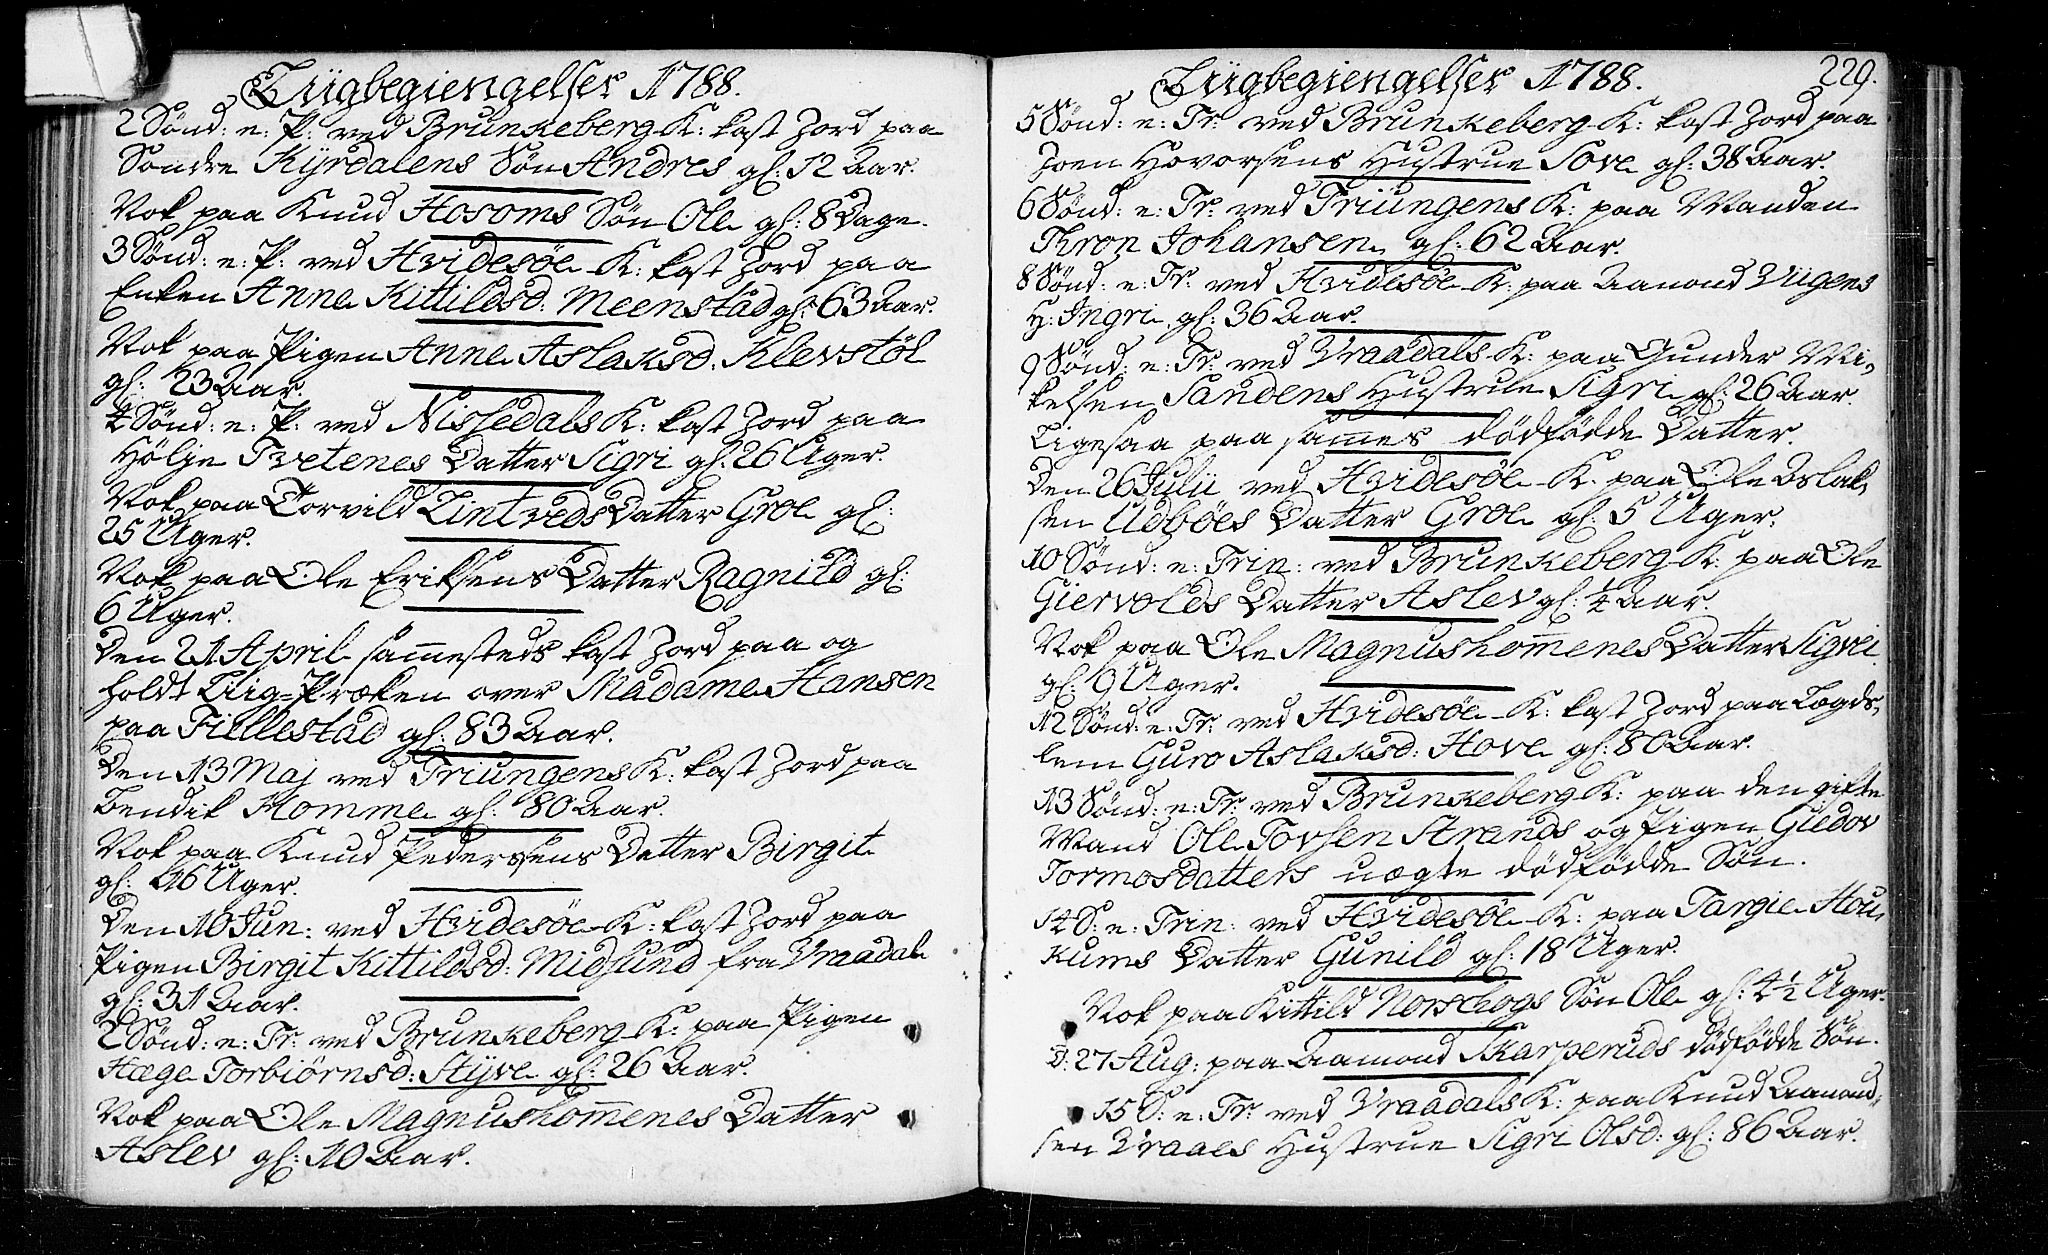 Liigbegiengelser 1788.
2 Sønd: e: P: ved Brunkeberg K: kast Jord paa
Søndre Kyrdalens Søn Andres gl: 12 Aar.
Nok paa Knud Hosoms Søn Ole gl: 8 Dage.
3 Sønd: e: P: ved Hvidesøe K: kast Jord paa
Enken Anne Kittildsd: Meenstad gl: 63 Aar.
Nok paa Pigen Anne Aslaksd: Klevstøl
gl: 23 Aar.
4 Sønd: e: P: ved Nissedals K: kast Jord paa
Hølje Tvetenes Datter Sigri gl: 26 Uger.
Nok paa Torvild Lintveds Datter Groe gl:
25 Uger.
Nok paa Ole Eriksens Datter Ragnild gl:
6 Uger.
Den 21 April sammesteds kast Jord paa og
holdt Liig-Præken over Madame Hansen
paa Fiellestad gl: 83 Aar.
Den 13 Maj ved Triungens K: kast Jord paa
Bendik Homme gl: 80 Aar.
Nok paa Knud Pederssens Datter Birgit
gl: 16 Uger.
Den 10 Jun: ved Hvidesøe K: kast Jord paa
Pigen Birgit Kittildsd: Midsund fra Vraadal
gl: 31 Aar.
2 Sønd: e: Tr: ved Brunkeberg K: paa Pigen
Hæge Torbiörnsd: Styve gl: 26 Aar.
Nok paa Ole Magnushom̄enes Datter
Aslev gl: 10 Aar.
Liigbegiengelser 1788.
229.
5 Sønd: e: Tr: ved Brunkeberg K: kast Jord paa
Joen Hovorsens Hustrue Tove gl: 38 Aar.
6 Sønd: e: Tr: ved Triungens K: paa Manden
Thron Johansen gl: 62 Aar.
8 Sønd: e: Tr: ved Hvidesøe K: paa Aamond Vigens
H: Ingri gl: 36 Aar.
9 Sønd: e: Tr: ved Vraadals K: paa Gunder Mi-
kelsen Sandens Hustrue Sigri gl: 26 Aar.
Ligesaa paa sam̄es dødfødde Datter.
Den 26 Julii ved Hvidesøe K: paa Ole Aslak-
sen Udbøes Datter Groe gl: 5 Uger.
10 Sønd: e: Trin: ved Brunkeberg K: paa Ole
Giervolds Datter Aslev gl: ¼ Aar.
Nok paa Ole Magnushom̄enes Datter Sigvei
gl: 9 Uger.
12 Sønd: e: Tr: ved Hvidesøe K: kast Jord paa Lægds-
lem Guro Aslaksd: Hove gl: 80 Aar.
13 Sønd: e: Tr: ved Brunkeberg K: paa den gifte
Mand Ole Tovsen Strands og Pigen Giedov
Tormosdatters uægte dødfødde Søn.
14 S: e: Trin: ved Hvidesøe K: paa Targie Hou-
kums Datter Gunild gl: 18 Uger.
Nok paa Kittild Norskogs Søn Ole gl: 4½ Uger.
D: 27 Aug: paa Aamond Skarperuds dødfødde Søn.
15 S: e: Tr: ved Vraadals K: paa Knud Aamond-
sen Vraaes Hustrue Sigri Olsd: gl: 86 Aar.